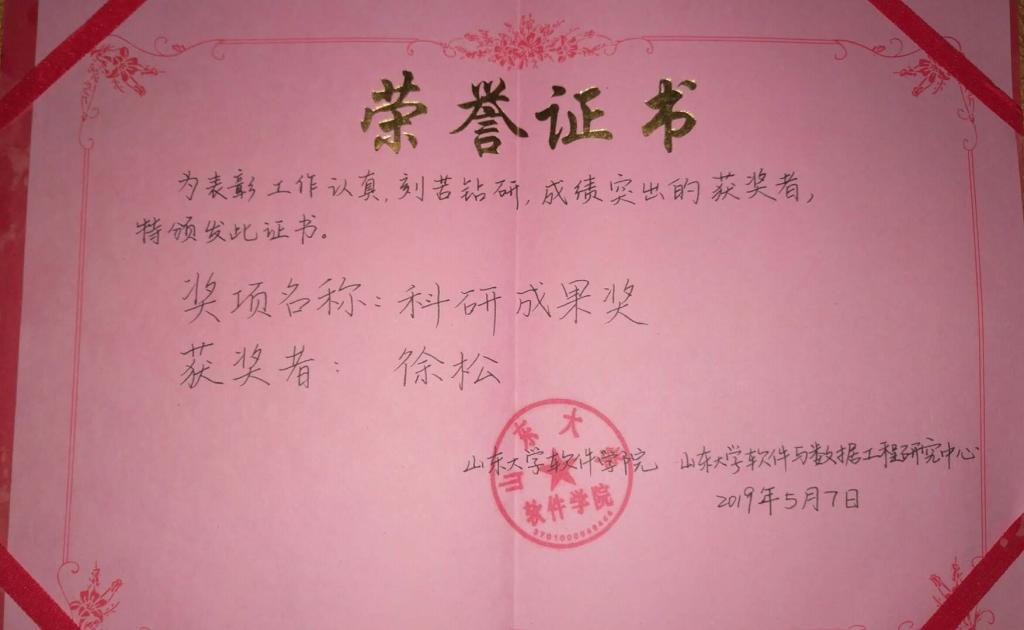 荣誉证书
为表彰工作认真,刻苦钻研,成绩突出的获奖者,
特颁发此证书。
奖项名称:科研成果奖
获奖者: 徐松
山东大学软件学院 山东大学软件与数据工程研究中心
2019年5月7日
山东大
软件学院